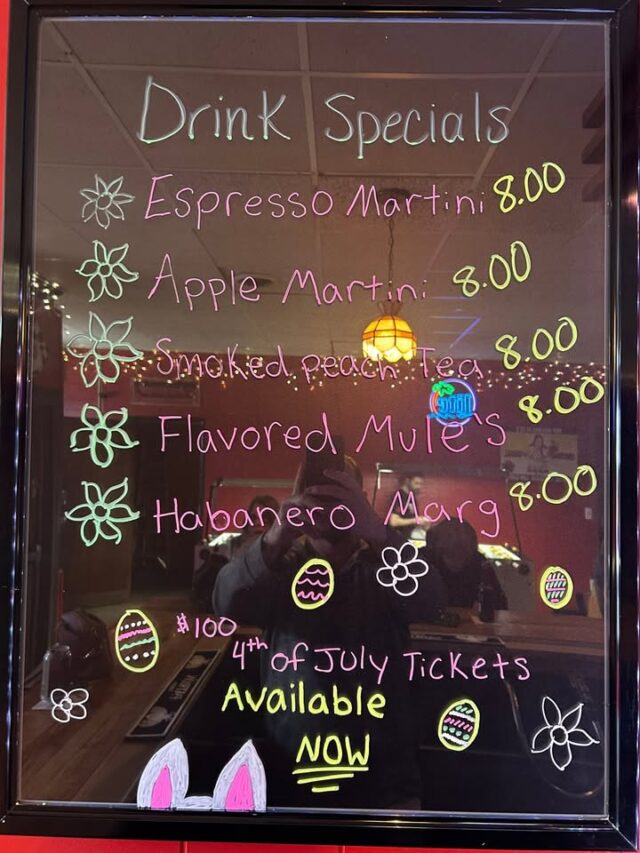 Drink Specials
Espresso Martini 8.00
Apple Martini 8.00
Smoked peach Tea 8.00
Flavored Mule's 8.00
Habanero Marg 8.00
$100
4th of July Tickets
Available
NOW